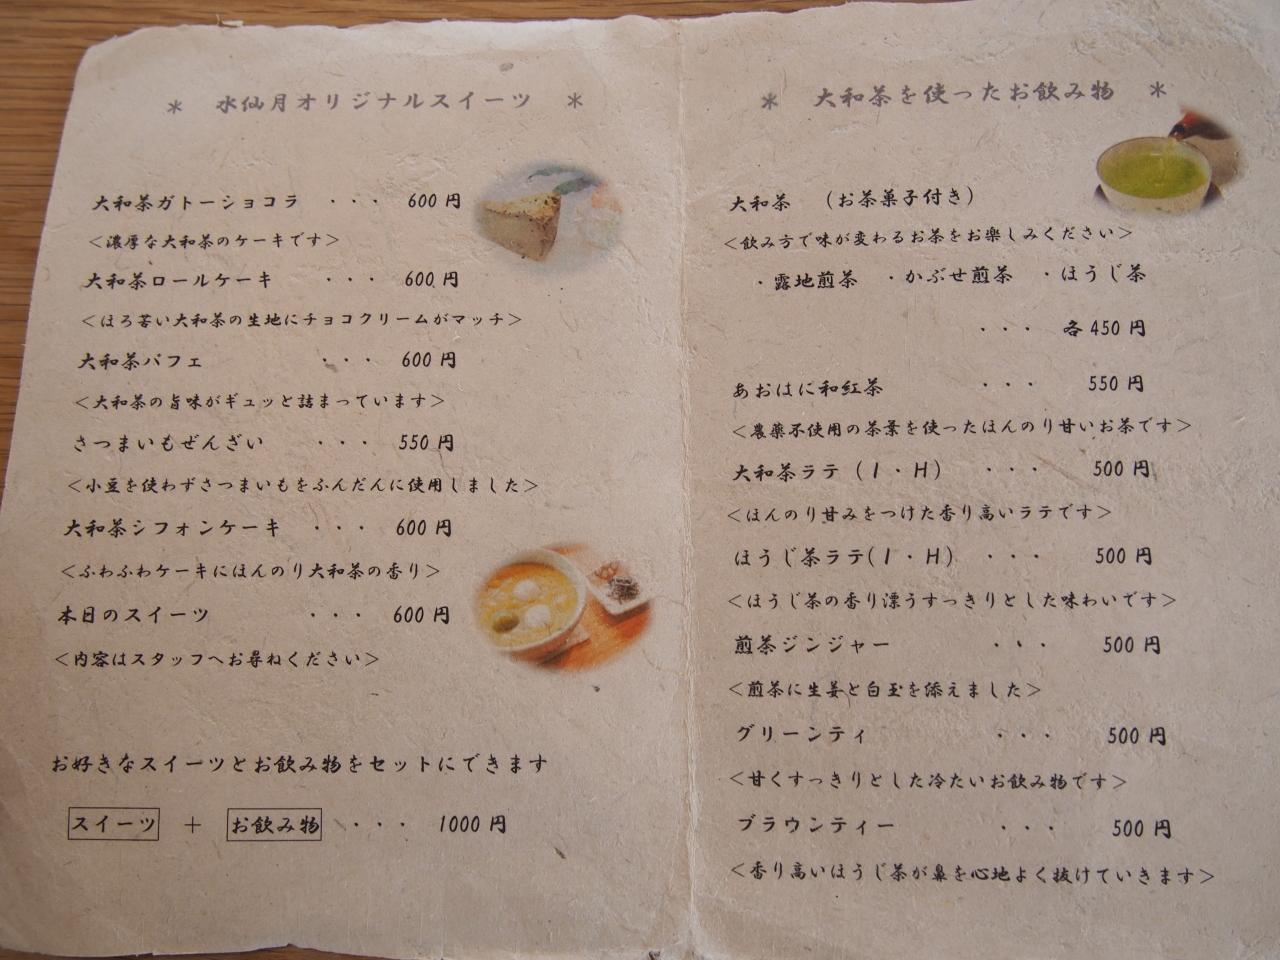 ＊ 水仙月オリジナルスイーツ ＊
大和茶ガトーショコラ ・・・ 600 円
＜濃厚な大和茶のケーキです＞
大和茶ロールケーキ ・・・ 600 円
＜ほろ苦い大和茶の生地にチョコクリームがマッチ＞
大和茶パフェ ・・・ 600 円
＜大和茶の旨味がギュッと詰まっています＞
さつまいもぜんざい ・・・ 550 円
＜小豆を使わずさつまいもをふんだんに使用しました＞
大和茶シフォンケーキ ・・・ 600 円
＜ふわふわケーキにほんのり大和茶の香り＞
本日のスイーツ ・・・ 600 円
＜内容はスタッフへお尋ねください＞
お好きなスイーツとお飲み物をセットにできます
スイーツ ＋ お飲み物 ・・・ 1000 円
＊ 大和茶を使ったお飲み物 ＊
大和茶 （お茶菓子付き）
＜飲み方で味が変わるお茶をお楽しみください＞
・露地煎茶 ・かぶせ煎茶 ・ほうじ茶
・・・ 各 450 円
あおはに和紅茶 ・・・ 550 円
＜農薬不使用の茶葉を使ったほんのり甘いお茶です＞
大和茶ラテ（I・H） ・・・ 500 円
＜ほんのり甘みをつけた香り高いラテです＞
ほうじ茶ラテ(I・H) ・・・ 500 円
＜ほうじ茶の香り漂うすっきりとした味わいです＞
煎茶ジンジャー ・・・ 500 円
＜煎茶に生姜と白玉を添えました＞
グリーンティ ・・・ 500 円
＜甘くすっきりとした冷たいお飲み物です＞
ブラウンティー ・・・ 500 円
＜香り高いほうじ茶が鼻を心地よく抜けていきます＞